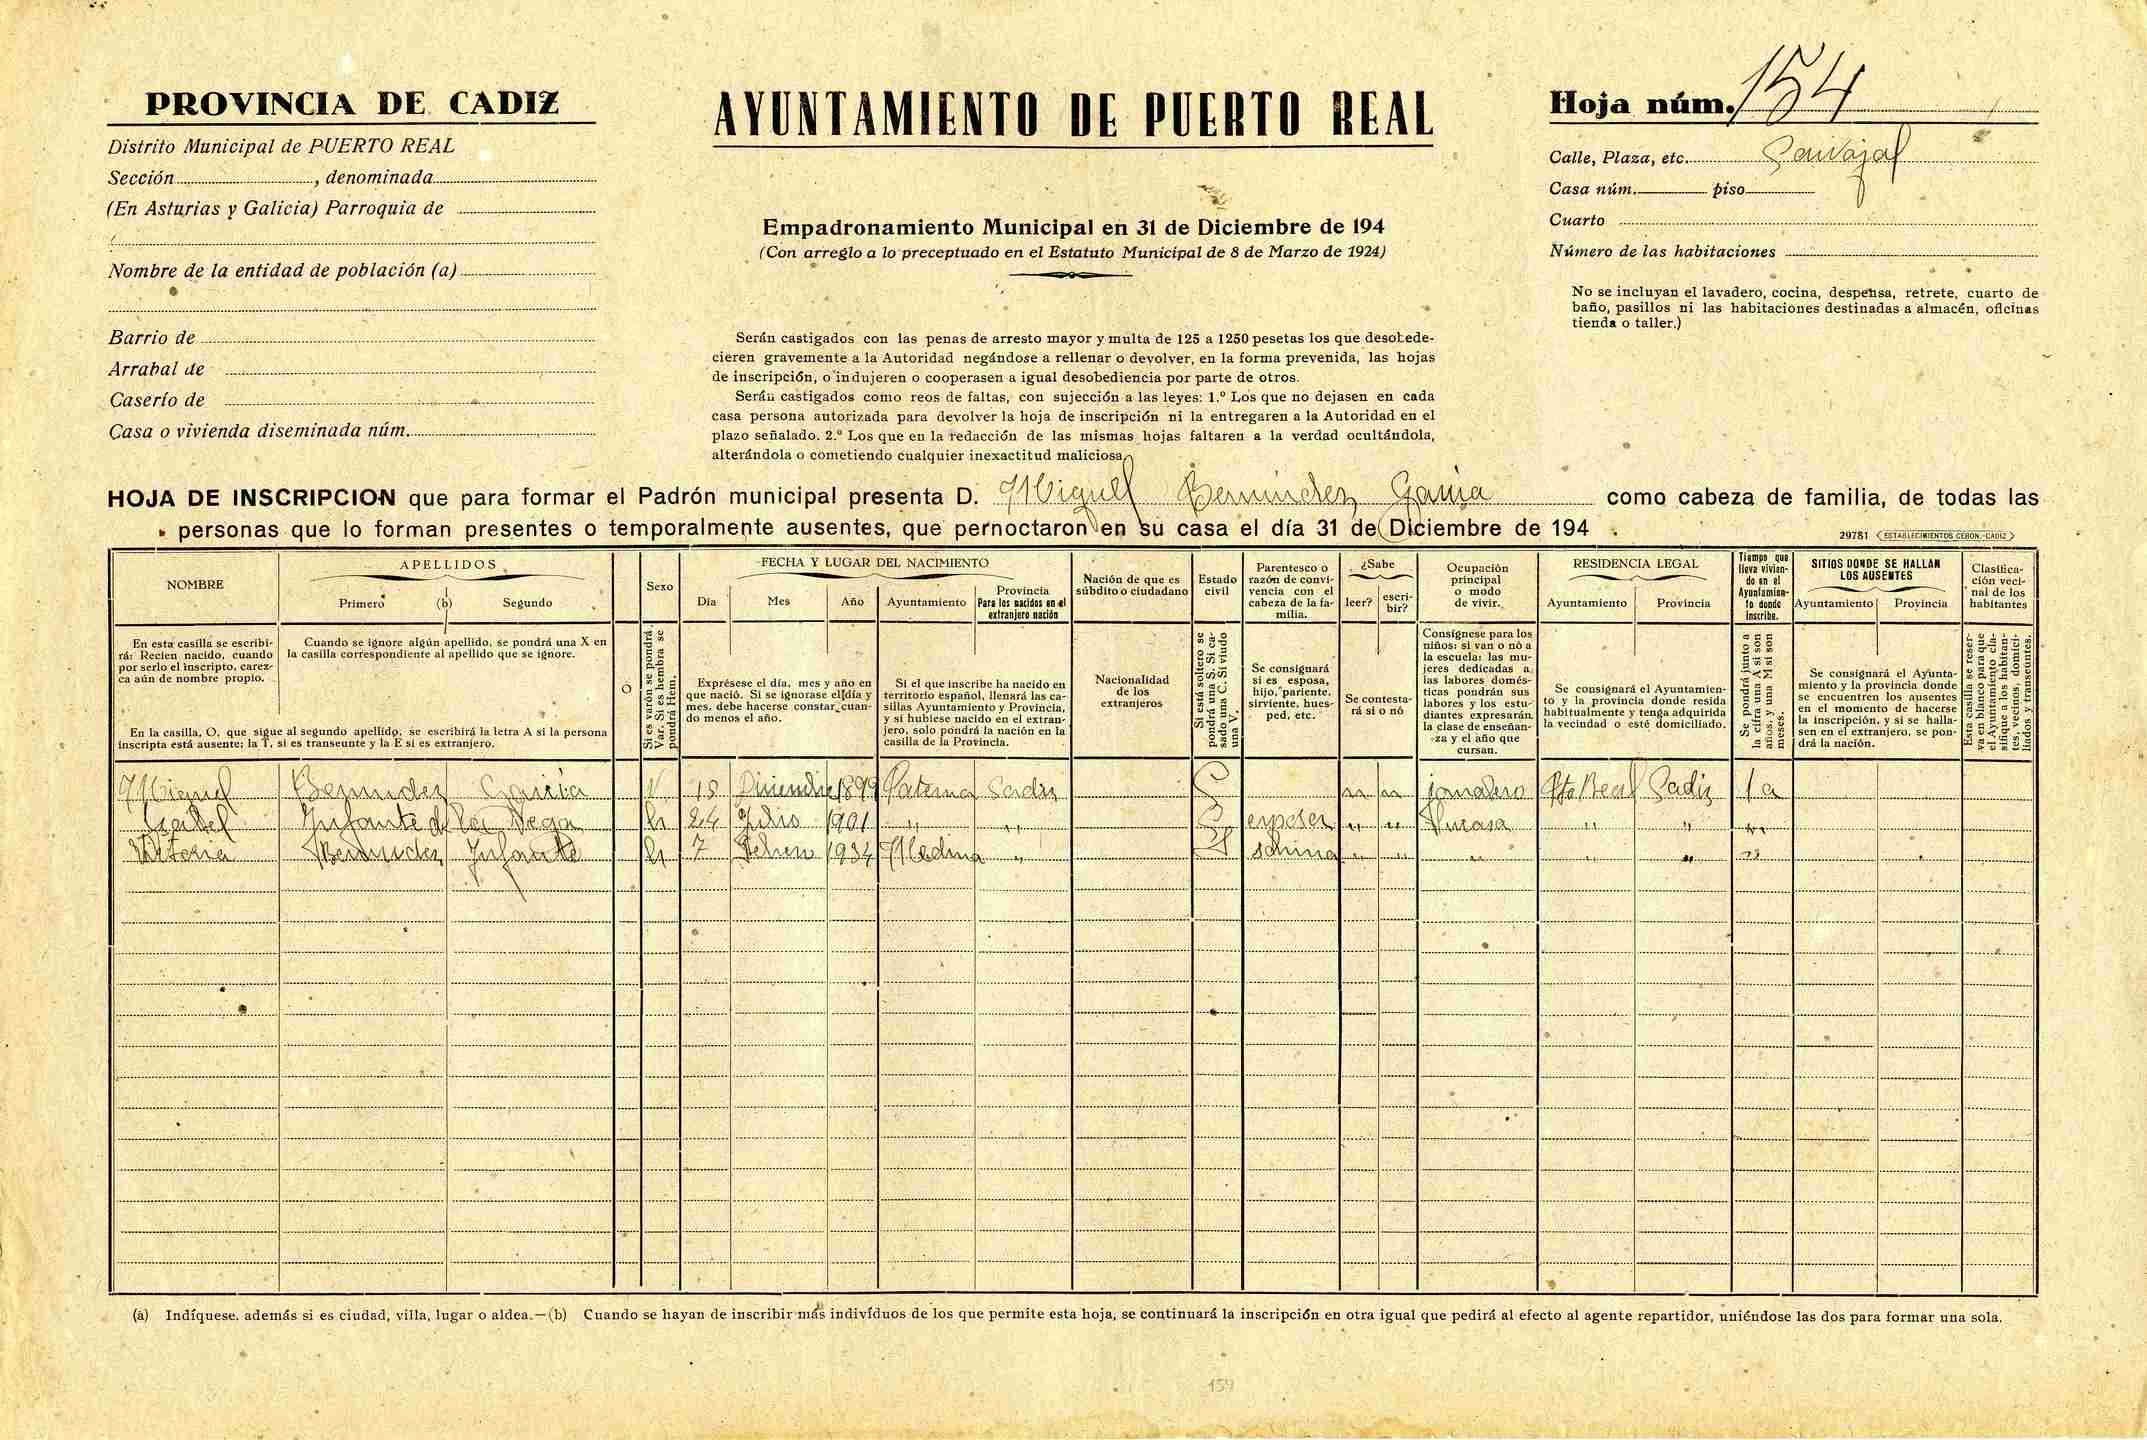 PROVINCIA DE CADIZ
Distrito Municipal de PUERTO REAL
Sección , denominada
(En Asturias y Galicia) Parroquia de
Nombre de la entidad de población (a)
Barrio de
Arrabal de
Caserío de
Casa o vivienda diseminada núm.
AYUNTAMIENTO DE PUERTO REAL
Empadronamiento Municipal en 31 de Diciembre de 194
(Con arreglo a lo preceptuado en el Estatuto Municipal de 8 de Marzo de 1924)
Serán castigados con las penas de arresto mayor y multa de 125 a 1250 pesetas los que desobede-
cieren gravemente a la Autoridad negándose a rellenar o devolver, en la forma prevenida, las hojas
de inscripción, o indujeren o cooperasen a igual desobediencia por parte de otros.
Serán castigados como reos de faltas, con sujección a las leyes: 1.º Los que no dejasen en cada
casa persona autorizada para devolver la hoja de inscripción ni la entregaren a la Autoridad en el
plazo señalado. 2.º Los que en la redacción de las mismas hojas faltaren a la verdad ocultándola,
alterándola o cometiendo cualquier inexactitud maliciosa.
Hoja núm. 154
Calle, Plaza, etc. Carvajal
Casa núm. piso
Cuarto
Número de las habitaciones
No se incluyan el lavadero, cocina, despensa, retrete, cuarto de
baño, pasillos ni las habitaciones destinadas a almacén, oficinas
tienda o taller.)
HOJA DE INSCRIPCION que para formar el Padrón municipal presenta D. Miguel Bermudez Garcia como cabeza de familia, de todas las
personas que lo forman presentes o temporalmente ausentes, que pernoctaron en su casa el día 31 de Diciembre de 194
29781 ESTABLECIMIENTOS CERÓN.-CADIZ
NOMBRE
En esta casilla se escribi-
rá: Recien nacido, cuando
por serlo el inscripto, carez-
ca aún de nombre propio.
APELLIDOS
Primero (b) Segundo
Cuando se ignore algún apellido, se pondrá una X en
la casilla correspondiente al apellido que se ignore.
En la casilla, O, que sigue al segundo apellido, se escribirá la letra A si la persona
inscripta está ausente; la T, si es transeunte y la E si es extranjero.
O
Sexo
Si es varón se pondrá
Var. Si es hembra se
pondrá Hem.
FECHA Y LUGAR DEL NACIMIENTO
Día Mes Año Ayuntamiento
Provincia
Para los nacidos en el
extranjero nación
Exprésese el día, mes y año en
que nació. Si se ignorase el día y
mes, debe hacerse constar cuan-
do menos el año.
Si el que inscribe ha nacido en
territorio español, llenará las ca-
sillas Ayuntamiento y Provincia,
y si hubiese nacido en el extran-
jero, solo pondrá la nación en la
casilla de la Provincia.
Nación de que es
súbdito o ciudadano
Nacionalidad
de los
extranjeros
Estado
civil
Si está soltero se
pondrá una S. Si ca-
sado una C. Si viudo
una V.
Parentesco o
razón de convi-
vencia con el
cabeza de la fa-
milia.
Se consignará
si es esposa,
hijo, pariente,
sirviente, hues-
ped, etc.
¿Sabe
leer? escri-
bir?
Se contesta-
rá si o nó
Ocupación
principal
o modo
de vivir.
Consígnese para los
niños: si van o nó a
la escuela: las mu-
jeres dedicadas a
las labores domés-
ticas pondrán sus
labores y los estu-
diantes expresarán
la clase de enseñan-
za y el año que
cursan.
RESIDENCIA LEGAL
Ayuntamiento Provincia
Se consignará el Ayuntamien-
to y la provincia donde resida
habitualmente y tenga adquirida
la vecindad o esté domiciliado.
Tiempo que
lleva vivien-
do en el
Ayuntamien-
to donde
inscribe.
Se pondrá junto a
la cifra una A si son
años, y una M si son
meses.
SITIOS DONDE SE HALLAN
LOS AUSENTES
Ayuntamiento Provincia
Se consignará el Ayunta-
miento y la provincia donde
se encuentren los ausentes
en el momento de hacerse
la inscripción, y si se halla-
sen en el extranjero, se pon-
drá la nación.
Clasifica-
ción veci-
nal de los
habitantes
Esta casilla se reser-
va en blanco para que
el Ayuntamiento cla-
sifique a los habitan-
tes, vecinos, domici-
liados y transeuntes.
Miguel Bermudez Garcia V. 18 Diciembre 1899 Paterna Cadiz C n n jornalero Pto Real Cadiz 1 a
Isabel Infante de la Vega H 24 Julio 1901 " " C " " Su casa " "
Victoria Bermudez Infante H 7 1934 Medina " S " " " " "
(a) Indíquese. además si es ciudad, villa, lugar o aldea.—(b) Cuando se hayan de inscribir más indivíduos de los que permite esta hoja, se continuará la inscripción en otra igual que pedirá al efecto al agente repartidor, uniéndose las dos para formar una sola.
159